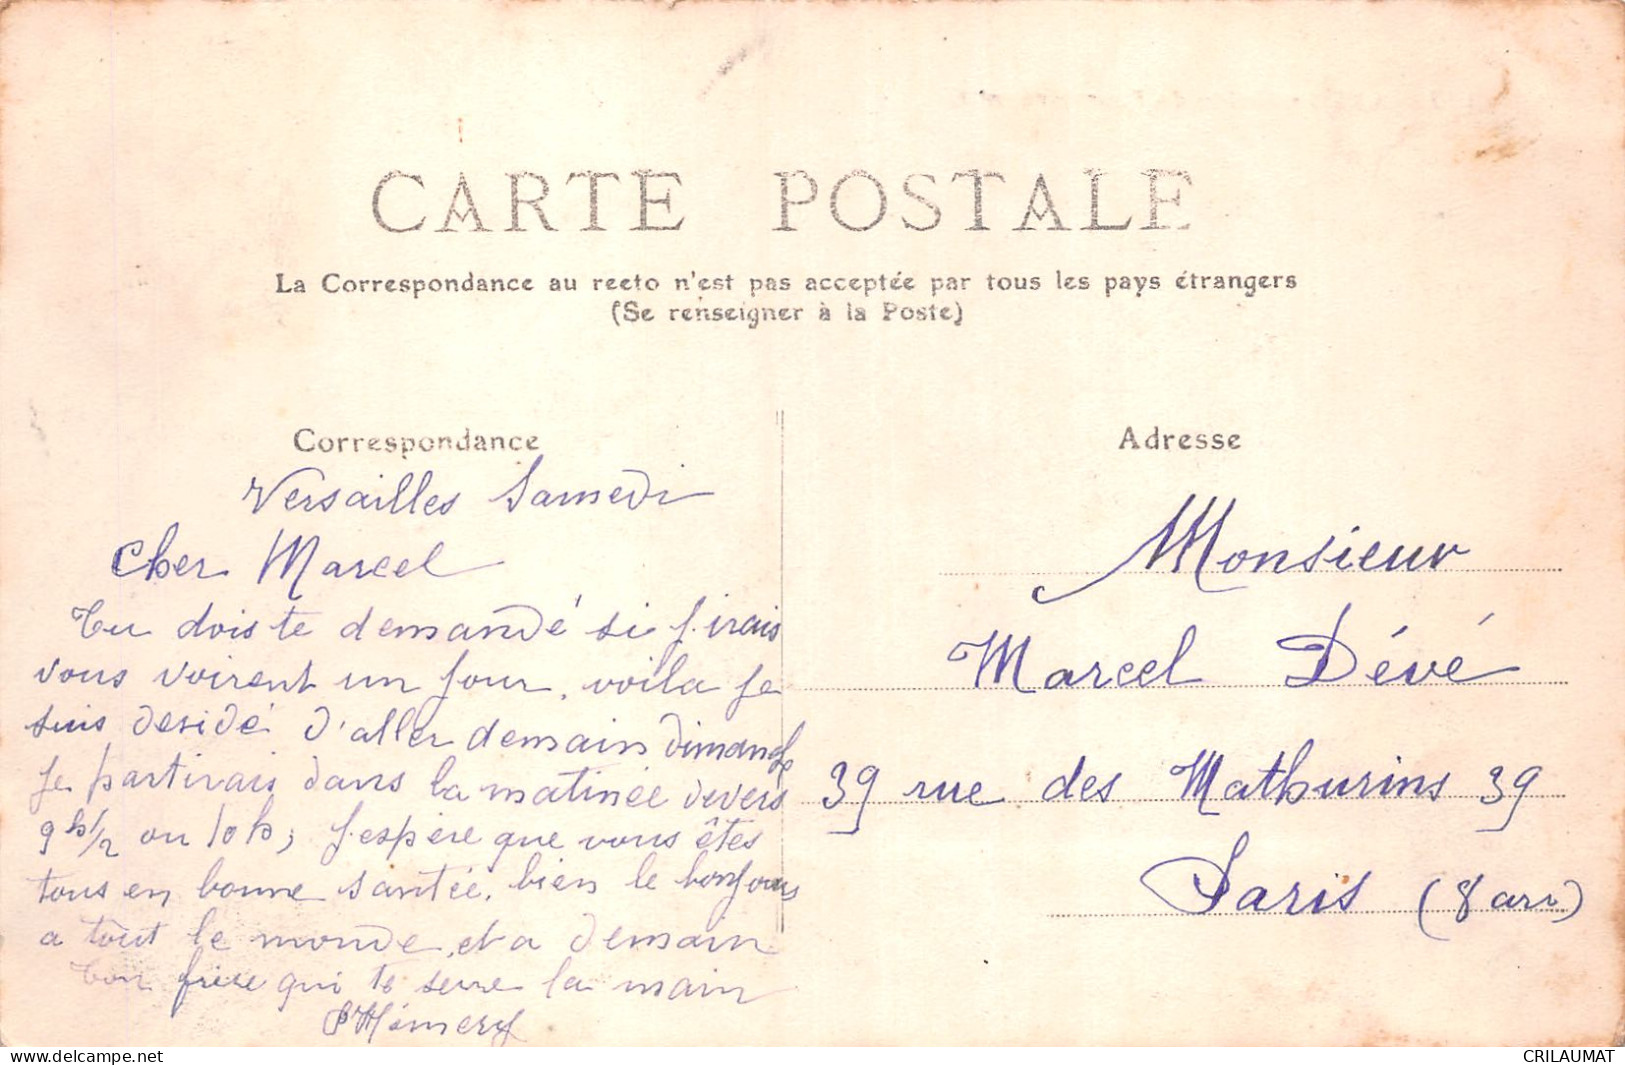 CARTE POSTALE
La Correspondance au recto n'est pas acceptée par tous les pays étrangers
(Se renseigner à la Poste)
Correspondance
Versailles Samedi
Cher Marcel
Tu dois te demandé si j'irais
vous voirent un jour, voila je
suis desidé d'aller demain dimanche
je partirais dans la matinée devers
9 h 1/2 ou 10 h, j'espère que vous êtes
tous en bonne santée. bien le bonjours
a tout le monde, et a demain
Ton frère qui te serre la main
Adresse
Monsieur
Marcel Dévé
39 rue des Mathurins 39
Paris (8 arr)
www.delcampe.net
CRILAUMAT